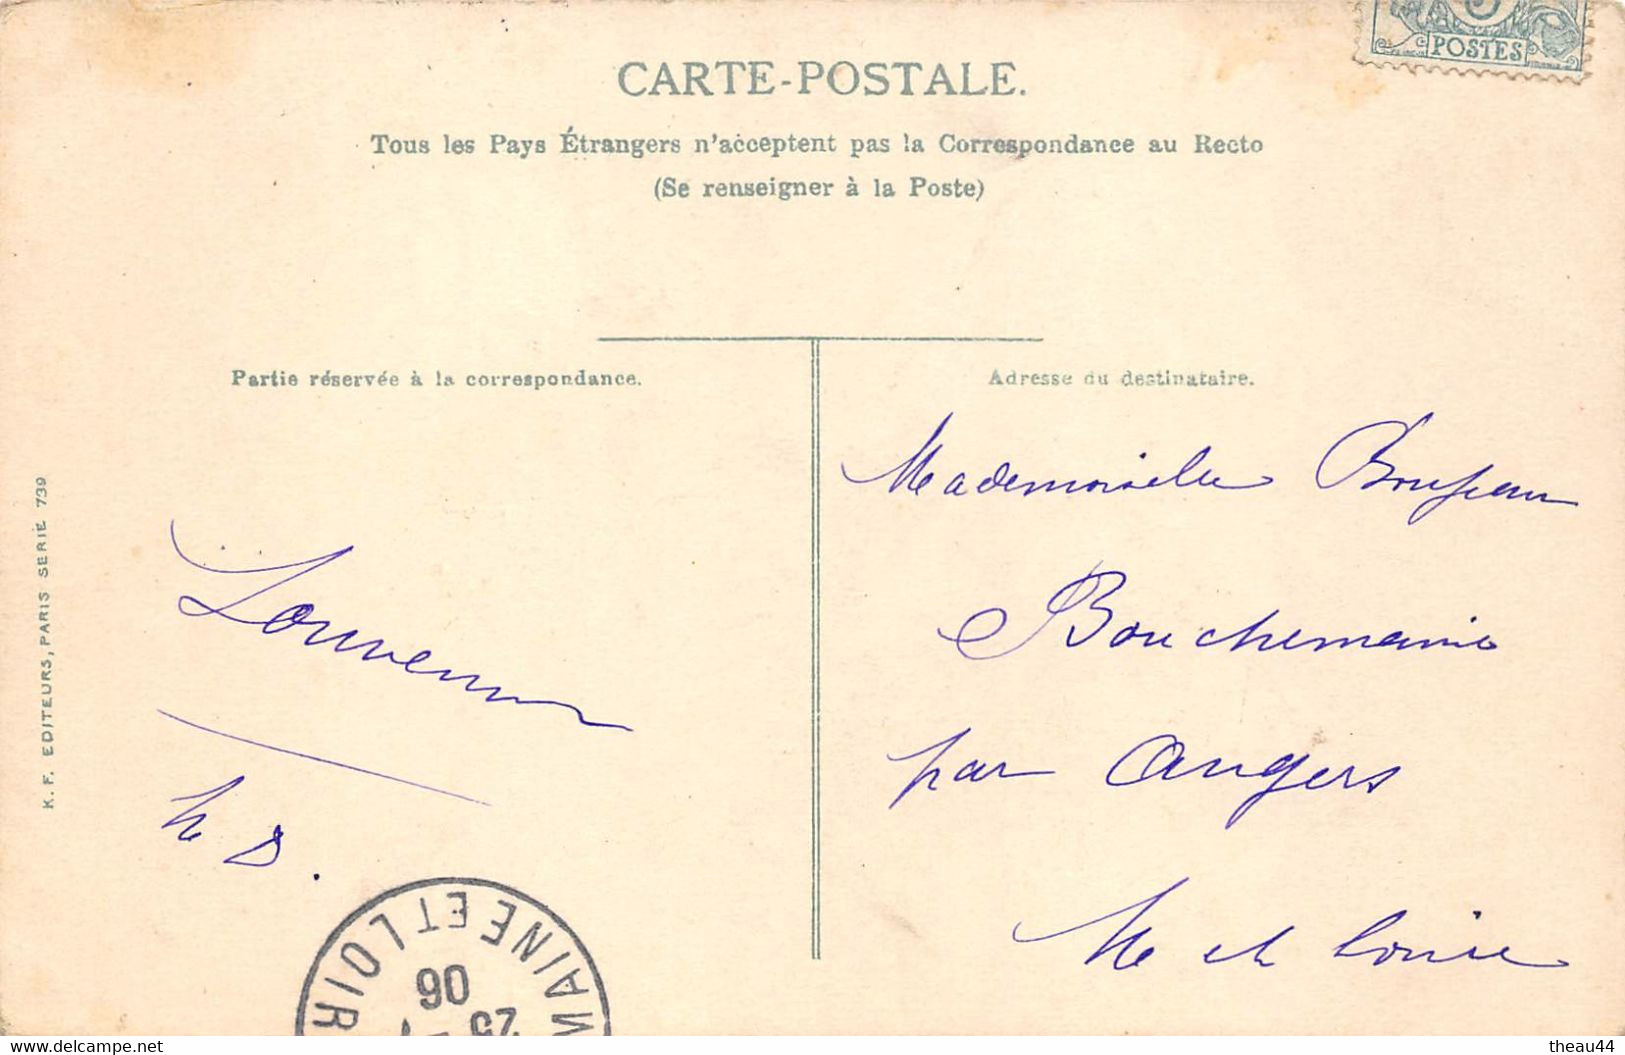 POSTES
CARTE-POSTALE.
Tous les Pays Étrangers n'acceptent pas la Correspondance au Recto
(Se renseigner à la Poste)
Partie réservée à la correspondance.
Adresse du destinataire.
K. F. EDITEURS, PARIS SERIE 739
Mademoiselle
Bouchemaine
par Angers
M et Loire
MAINE ET LOIR
25
06
www.delcampe.net
theau44